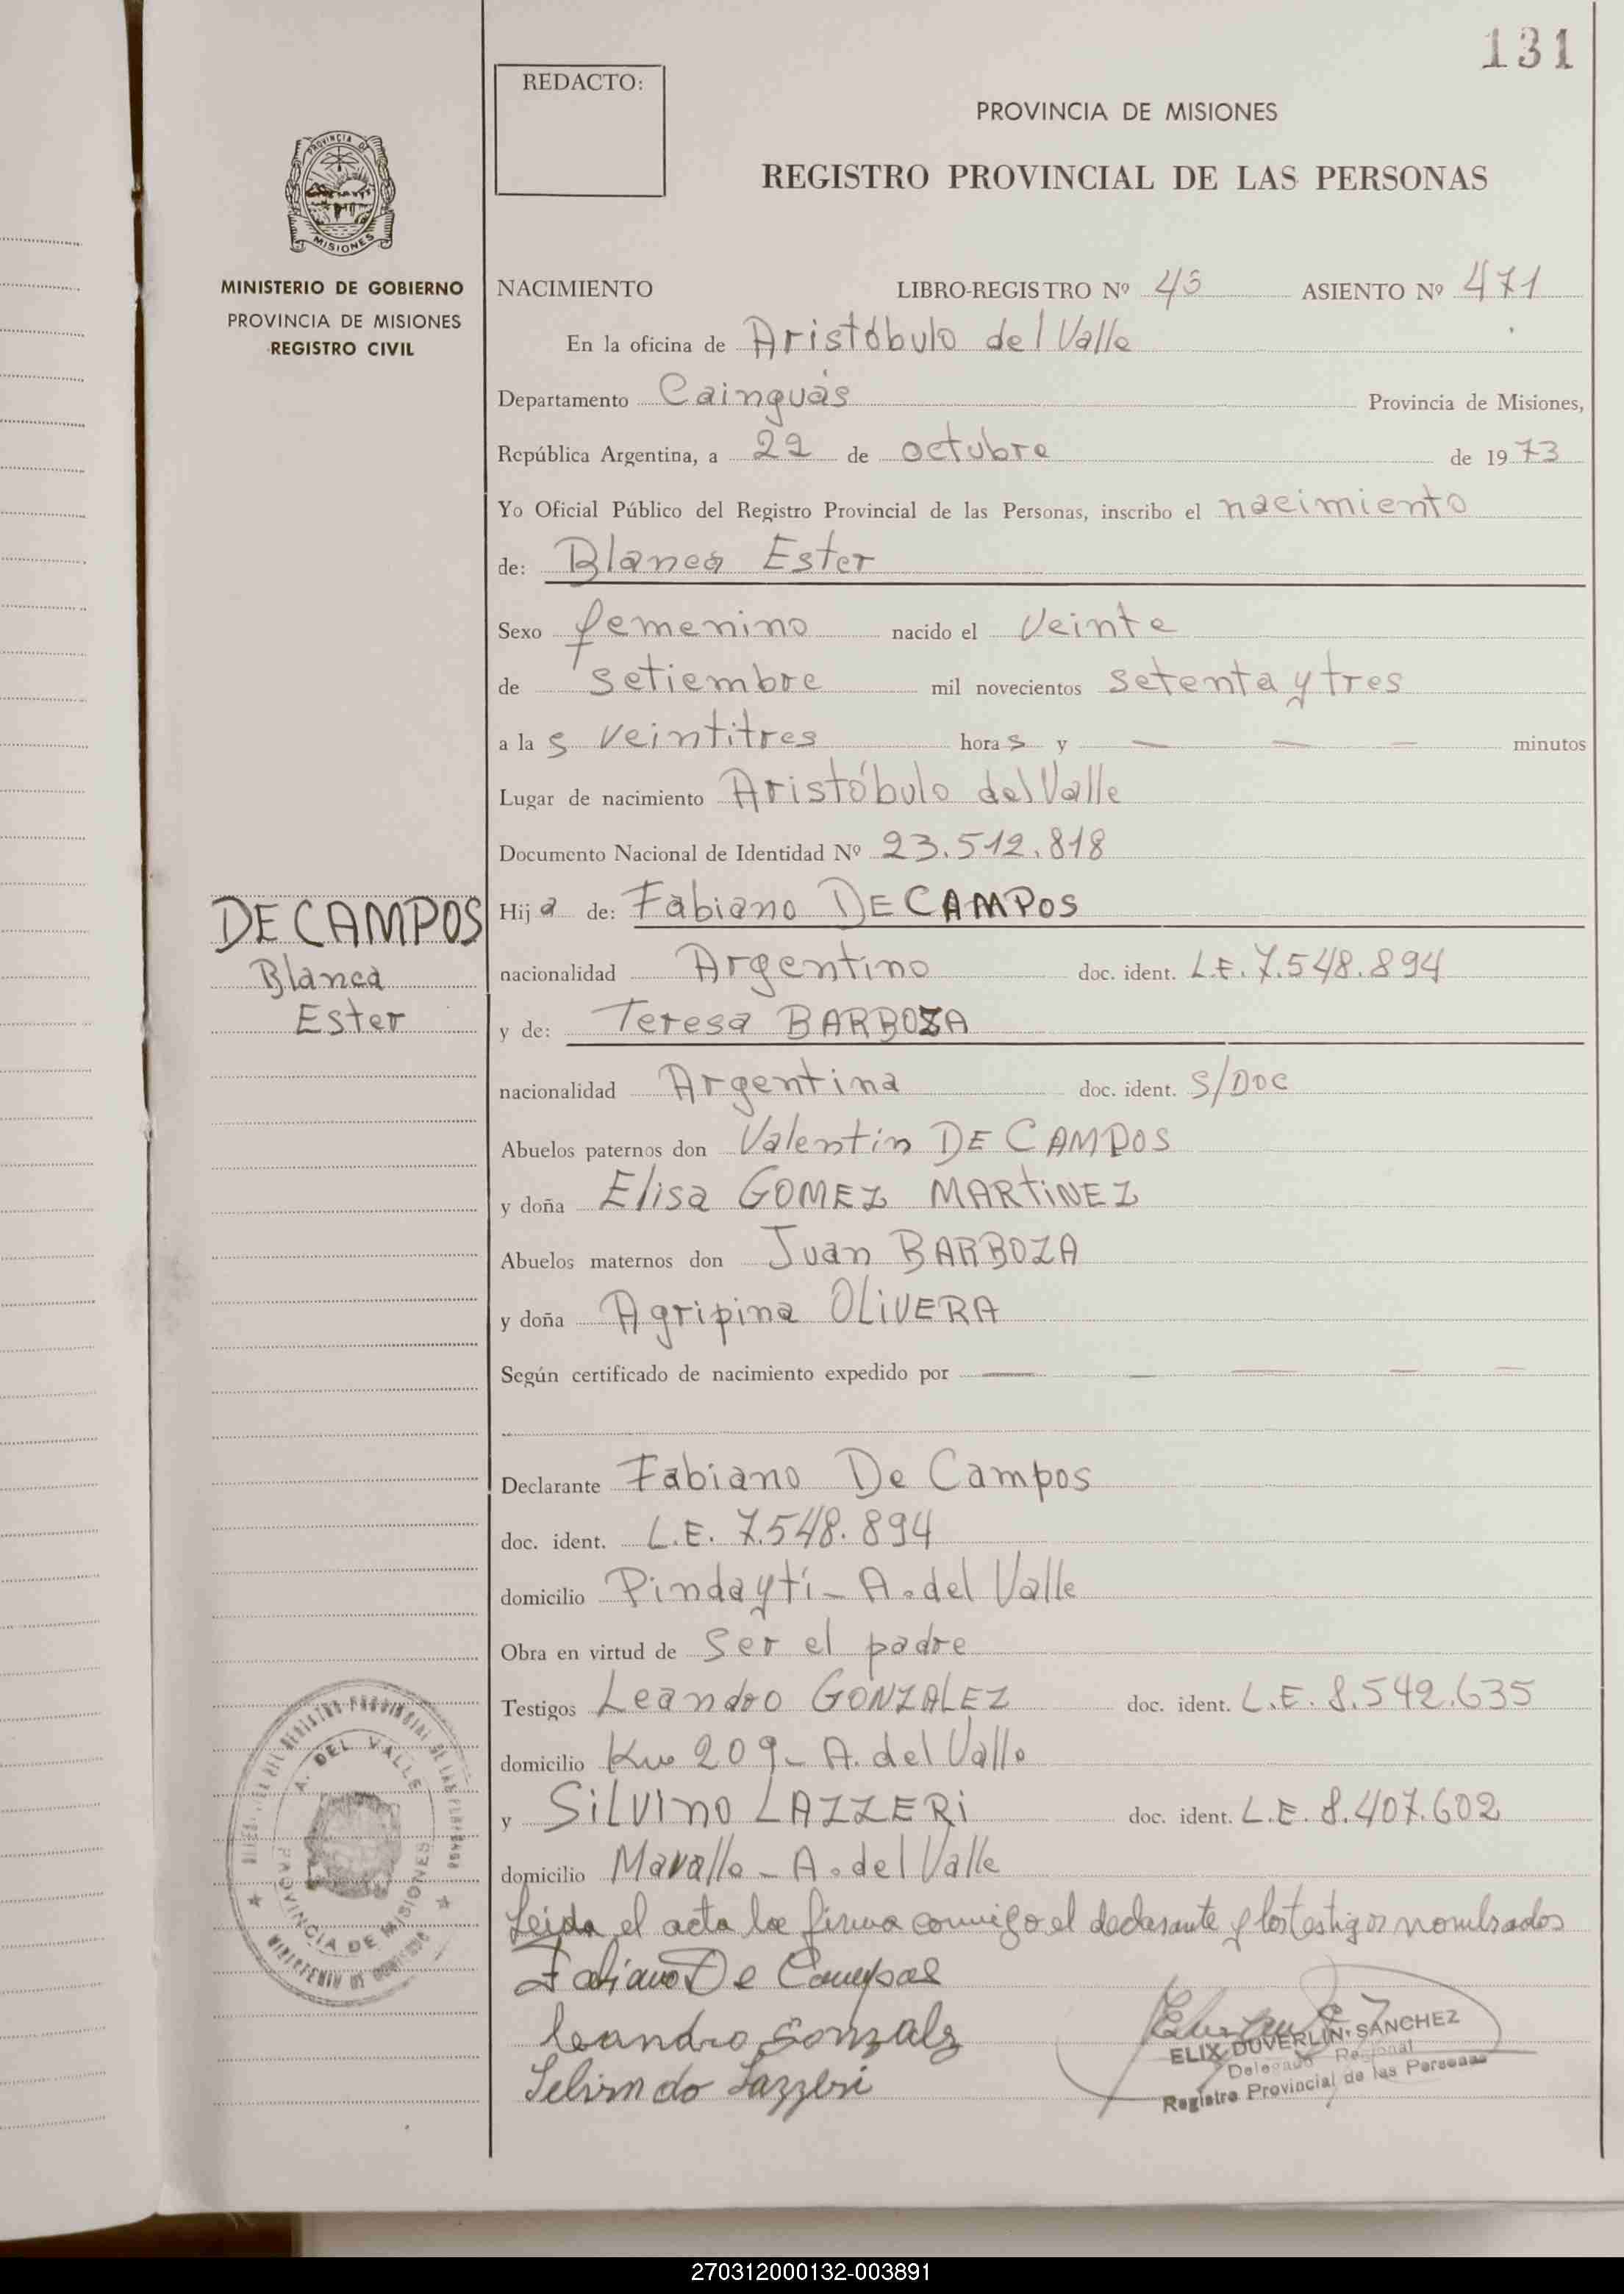 131
REDACTO:
PROVINCIA DE MISIONES
REGISTRO PROVINCIAL DE LAS PERSONAS
PROVINCIA DE
MISIONES
MINISTERIO DE GOBIERNO
PROVINCIA DE MISIONES
REGISTRO CIVIL
NACIMIENTO LIBRO-REGISTRO Nº 43 ASIENTO Nº 471
En la oficina de Aristóbulo del Valle
Departamento Cainguás Provincia de Misiones,
República Argentina, a 22 de octubre de 1973
Yo Oficial Público del Registro Provincial de las Personas, inscribo el nacimiento
de: Blanca Ester
Sexo femenino nacido el veinte
de setiembre mil novecientos setenta y tres
a las veintitres horas y — — — minutos
Lugar de nacimiento Aristóbulo del Valle
Documento Nacional de Identidad Nº 23.512.818
DE CAMPOS
Blanca
Ester
Hija de: Fabiano DE CAMPOS
nacionalidad Argentino doc. ident. L.E. 7.548.894
y de: Teresa BARBOZA
nacionalidad Argentina doc. ident. S/DOC
Abuelos paternos don Valentin DE CAMPOS
y doña Elisa GOMEZ MARTINEZ
Abuelos maternos don Juan BARBOZA
y doña Agripina OLIVERA
Según certificado de nacimiento expedido por — — — — —
Declarante Fabiano De Campos
doc. ident. L.E. 7.548.894
domicilio Pindaytí - A. del Valle
Obra en virtud de ser el padre
Testigos Leandro GONZALEZ doc. ident. L.E. 8.542.635
domicilio Km 209 - A. del Valle
y SILVINO LAZZERI doc. ident. L.E. 8.407.602
domicilio Mavalle - A. del Valle
Leida el acta la firma conmigo el declarante y los testigos nombrados
Fabiano De Campos
Leandro Gonzalez
Lazzeri
ELIX DUVERLIN SANCHEZ
Delegado Regional
Registro Provincial de las Personas
REGISTRO PROVINCIAL DE LAS PERSONAS
A. DEL VALLE
PROVINCIA DE MISIONES
MINISTERIO DE GOBIERNO
270312000132-003891